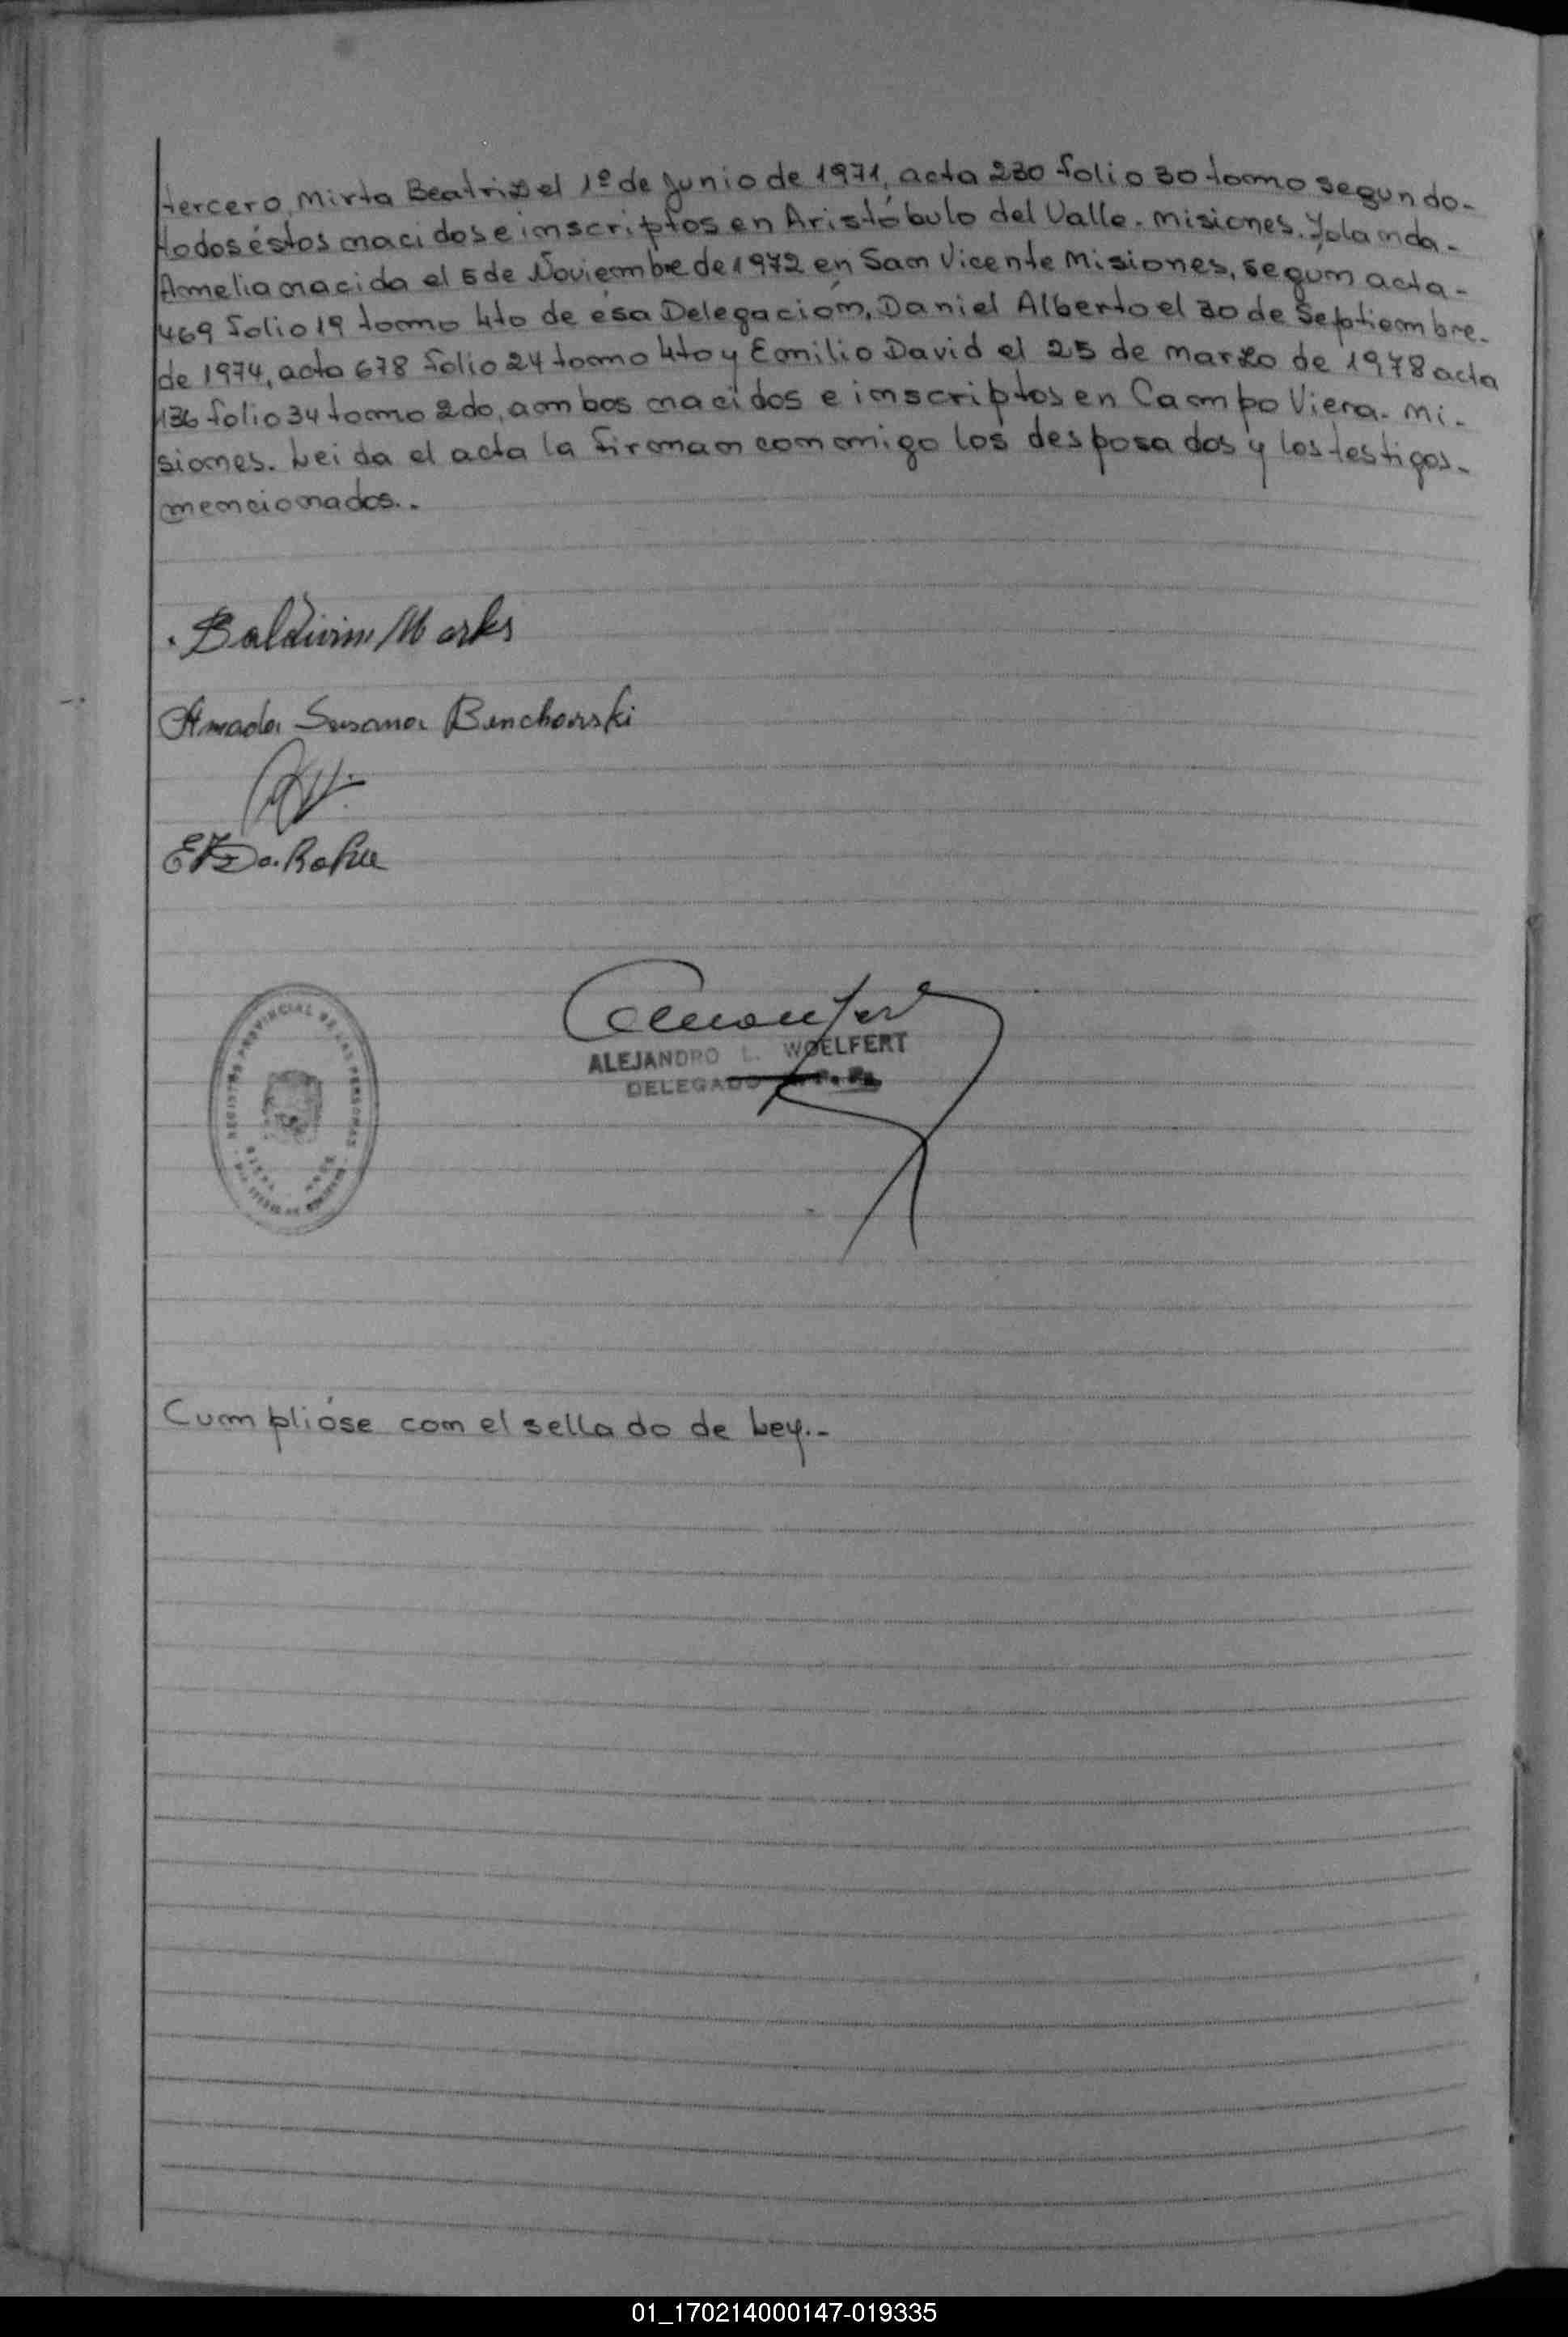 tercero, Mirta Beatriz el 1º de Junio de 1971, acta 230 folio 30 tomo segundo-
todos éstos nacidos e inscriptos en Aristóbulo del Valle. Misiones. Yolanda-
Amelia nacida el 5 de Noviembre de 1972 en San Vicente Misiones, según acta-
469 folio 19 tomo 4to de ésa Delegación, Daniel Alberto el 30 de Septiembre-
de 1974, acta 678 folio 24 tomo 4to y Emilio David el 25 de marzo de 1978 acta
136 folio 34 tomo 2do, ambos nacidos e inscriptos en Campo Viera. Mi-
siones. Leida el acta la firman conmigo los desposados y los testigos-
mencionados..
Baldivin Marks
Amada Susana Binchovski
REGISTRO PROVINCIAL DE LAS PERSONAS
ALEJANDRO L. WOELFERT
DELEGADO
Cumplióse con el sellado de Ley.-
01_170214000147-019335